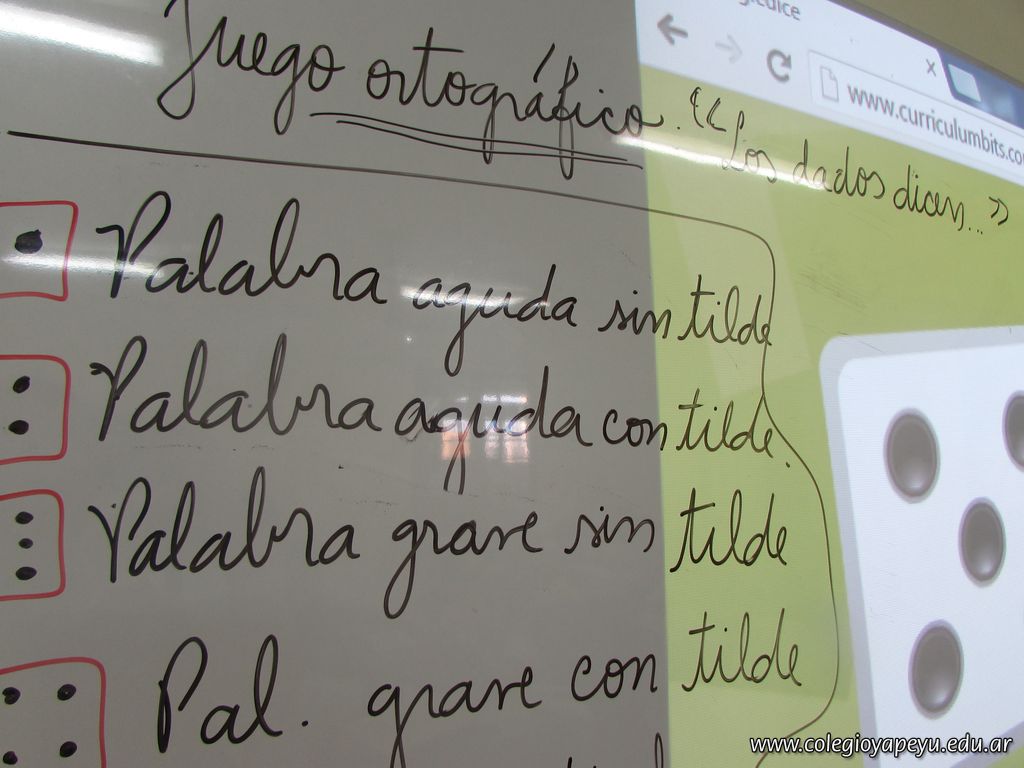 Juego ortográfico. "Los dados dicen..."
www.curriculumbits.co
Palabra aguda sin tilde
Palabra aguda con tilde.
Palabra grave sin tilde
Pal. grave con tilde
www.colegioyapeyu.edu.ar